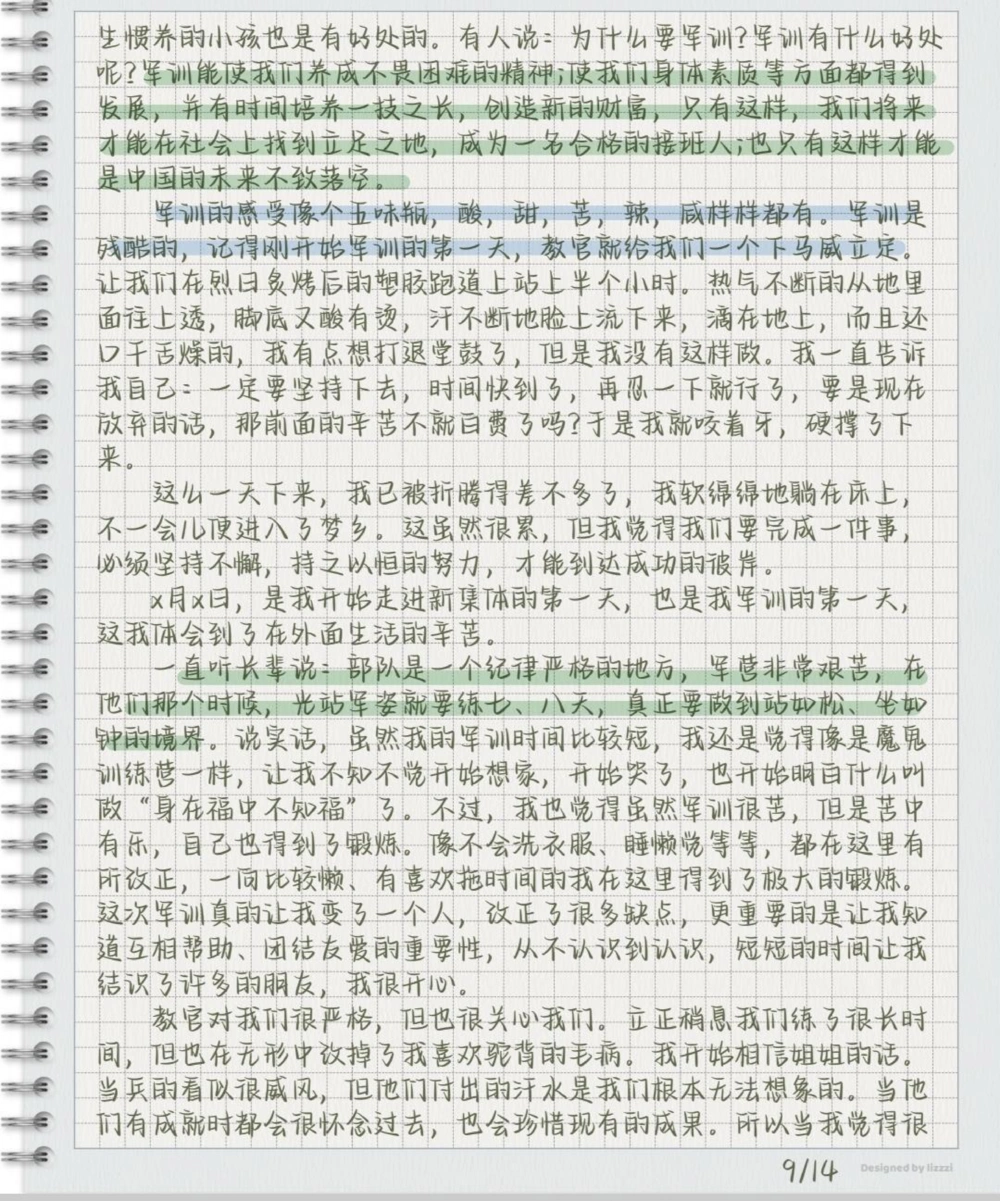 生惯养的小孩也是有好处的。有人说：为什么要军训?军训有什么好处
呢?军训能使我们养成不畏困难的精神;使我们身体素质等方面都得到
发展，并有时间培养一技之长，创造新的财富，只有这样，我们将来
才能在社会上找到立足之地，成为一名合格的接班人;也只有这样才能
是中国的未来不致落空。
军训的感受像个五味瓶，酸，甜，苦，辣，咸样样都有。军训是
残酷的，记得刚开始军训的第一天，教官就给我们一个下马威立定。
让我们在烈日炙烤后的塑胶跑道上站上半个小时。热气不断的从地里
面往上透，脚底又酸有烫，汗不断地脸上流下来，滴在地上，而且还
口干舌燥的，我有点想打退堂鼓了，但是我没有这样做。我一直告诉
我自己：一定要坚持下去，时间快到了，再忍一下就行了，要是现在
放弃的话，那前面的辛苦不就白费了吗?于是我就咬着牙，硬撑了下
来。
这么一天下来，我已被折腾得差不多了，我软绵绵地躺在床上，
不一会儿便进入了梦乡。这虽然很累，但我觉得我们要完成一件事，
必须坚持不懈，持之以恒的努力，才能到达成功的彼岸。
x月x日，是我开始走进新集体的第一天，也是我军训的第一天，
这我体会到了在外面生活的辛苦。
一直听长辈说：部队是一个纪律严格的地方，军营非常艰苦，在
他们那个时候，光站军姿就要练七、八天，真正要做到站如松、坐如
钟的境界。说实话，虽然我的军训时间比较短，我还是觉得像是魔鬼
训练营一样，让我不知不觉开始想家，开始哭了，也开始明白什么叫
做“身在福中不知福”了。不过，我也觉得虽然军训很苦，但是苦中
有乐，自己也得到了锻炼。像不会洗衣服、睡懒觉等等，都在这里有
所改正，一向比较懒、有喜欢拖时间的我在这里得到了极大的锻炼。
这次军训真的让我变了一个人，改正了很多缺点，更重要的是让我知
道互相帮助、团结友爱的重要性，从不认识到认识，短短的时间让我
结识了许多的朋友，我很开心。
教官对我们很严格，但也很关心我们。立正稍息我们练了很长时
间，但也在无形中改掉了我喜欢驼背的毛病。我开始相信姐姐的话。
当兵的看似很威风，但他们付出的汗水是我们根本无法想象的。当他
们有成就时都会很怀念过去，也会珍惜现有的成果。所以当我觉得很
9/14
Designed by lizzzi